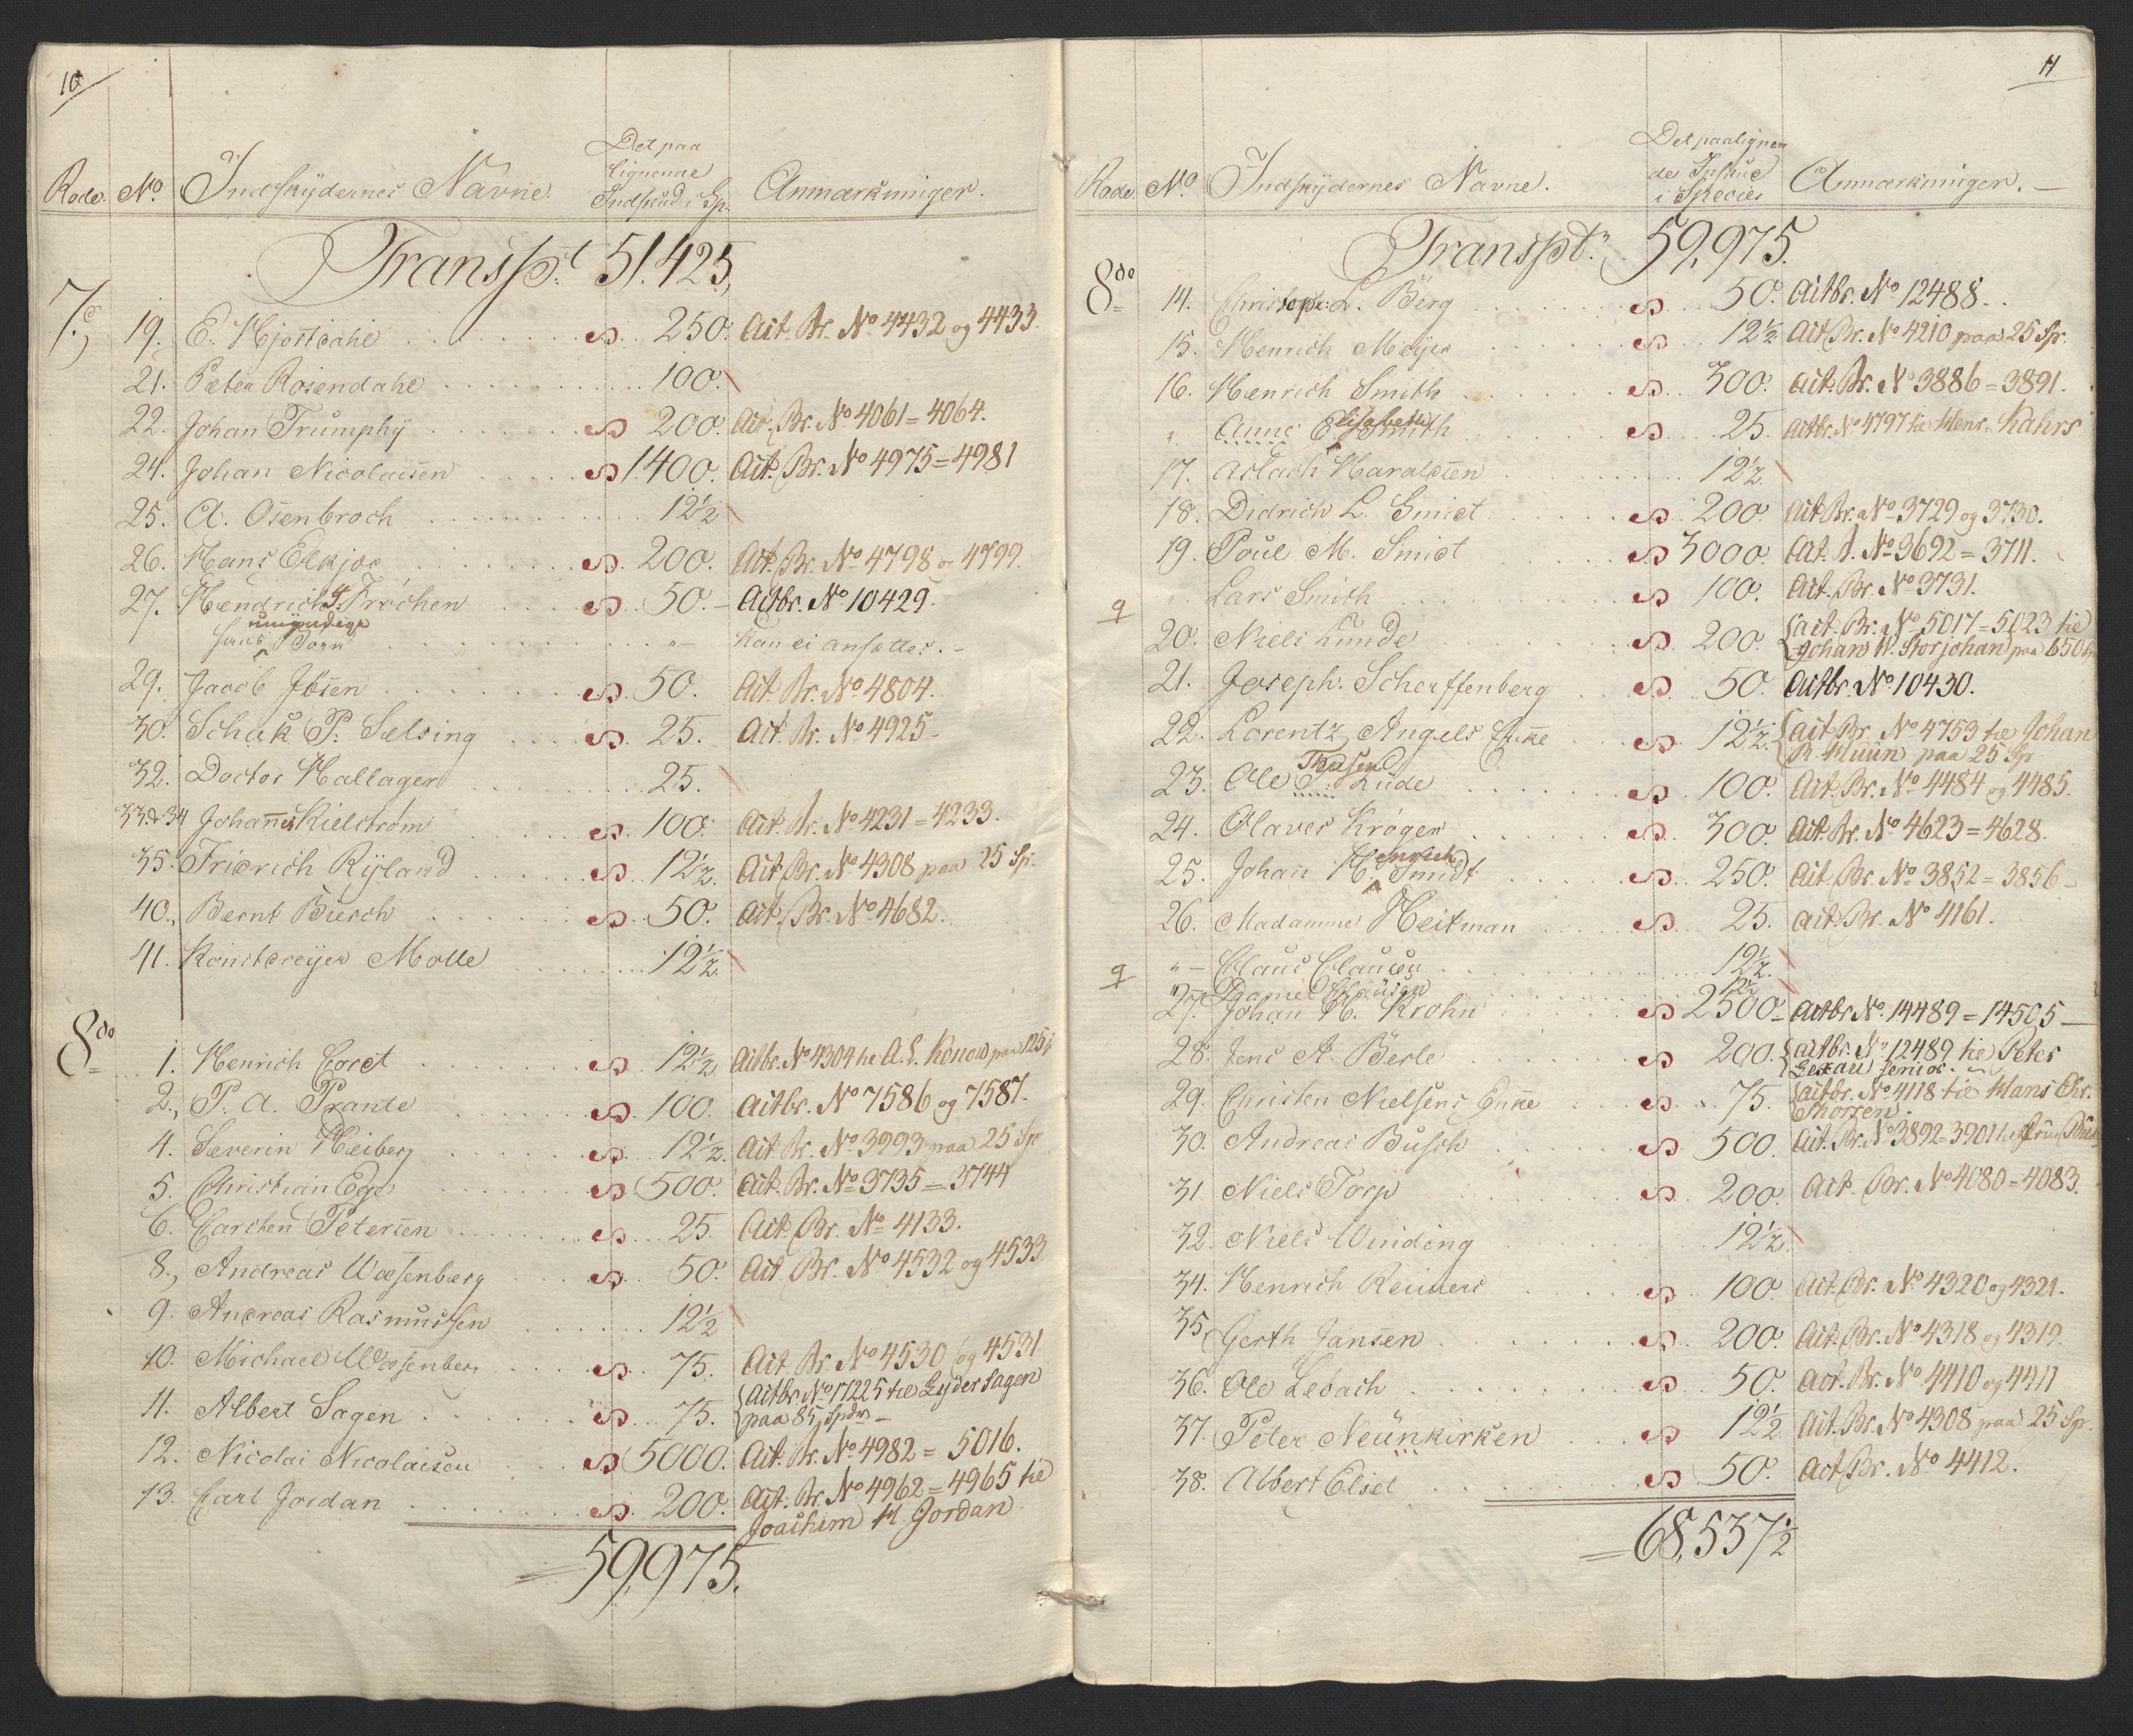 10
Rode. No. Indskydernes Navne. Det paa
lignende
Indskud i Sp. Anmærkninger.
Transpt. 51,425,
7de 19. E. Hjortdahl S 250. Act. Br. No 4432 og 4433.
21. Peter Rosendahl 100.
22. Johan Trumphy S 200. Act. Br. No 4061=4064.
24. Johan Nicolaisen S 1400. Act. Br. No 4975=4981
25. A. Osenbroch 12½
26. Hans Elkjær S 200. Act. Br. No 4798 og 4799.
27. Hendrich Frøchen S 50. Actbr. No 10429.
hans umyndige Børn "- Kan ei ansættes.-
29. Jacob Ibsen S 50. Act. Br. No 4804.
30. Schak P. Sælsing S 25. Act. Br. No 4925-
32. Doctor Hallager 25.
33 & 34 Johannes Kielstrøm S 100. Act. Br. No 4231=4233.
35. Fridrich Ryland S 12½. Act. Br. No 4308 paa 25 Sp.
40. Bernt Büsch S 50. Act. Br. No 4682.
41. Konstdreyer Molle 12½.
8de 1. Henrich Coret S 12½ Actbr. No 4304 til A. L. Konow paa 125 S
2. P. A. Prante S 100. Actbr. No 7586 og 7587.
4. Severin Heiberg S 12½. Act. Br. No 3993 paa 25 Sp
5. Christian Ege S 500. Act. Br. No 3735=3744
6. Carsten Petersen S 25. Act. Br. No 4133.
8. Andreas Wæsenberg S 50. Act. Br. No 4532 og 4533
9. Andreas Rasmussen 12½
10. Michael Wæsenberg S 75. Act. Br. No 4530 og 4531
11. Albert Sagen S 75. Actbr. No 17225 til Lyder Sagen
paa 85 Spdr -
12. Nicolai Nicolaisen S 5000. Act. Br. No 4982=5016.
13. Carl Jordan S 200. Act. Br. No 4962=4965 til
Joachim H. Jordan
=59,975.
11
Rode. No. Indskydernes Navne. Det paalignen
de Indskud
i Species Anmærkninger.-
Transpt. 59,975.
8de 14. Christoph: L. Berg S 50. Actbr. No 12488.
15. Henrich Meyer S 12½ Act. Br. No 4210 paa 25 Sp.
16. Henrich Smith S 300. Act. Br. No 3886=3891.
" Anne Elisabeth Smith S 25. Actbr. No 4797 til Henr. Kahrs
17. Aslach Haraldsen 12½.
18. Didrich L. Smidt S 200. Act. Br. No 3729 og 3730.
19. Poul M. Smidt S 3000. Act. Br. No 3692=3711.
q Lars Smith S 100. Act. Br. No 3731.
20. Niels Lunde S 200. Act. Br. No 5017=5023 til
Johan W. Storjohan paa 650 Sp
21. Joseph. Scherffenberg S 50. Actbr. No 10430.
22. Lorentz Angels Enke S 12½. Act. Br. No 4753 til Johan
R. Muun paa 25 Sp
23. Ole Thusen Lude S 100. Act. Br. No 4484 og 4485.
24. Olaves Krøger S 300. Act. Br. No 4623=4628.
25. Johan Henrich Smidt S 250. Act. Br. No 3852=3856-
26. Madamme Heitman S 25. Act. Br. No 4161.
q "- Claus Clausen 12½.
" Daniel Clausen 12½
27. Johan H. Krohn S 2500- Actbr No. 14489=14505-
28. Jens A. Berle S 200. Actbr. No 12489 til Peter
Gerau Senior.
29. Christen Nielsens Enke S 75. Actbr. No 4118 til Hans Chr.
Thorsen.
30. Andreas Busch S 500. Act. Br. No 3892=3901
31. Niels Torp S 200. Act. Br. No 4080=4083.
32. Niels Winding 12½.
34. Henrich Reimers S 100. Act. Br. No 4320 og 4321.
35. Gerth Jansen S 200. Act. Br. No 4318 og 4319.
36. Ole Lebach S 50. Act. Br. No 4410 og 4411
37. Peter Neünkirken S 12½ Act. Br. No 4308 paa 25 Sp.
38. Albert Elset S 50. Act. Br. No 4412.
=68,537½